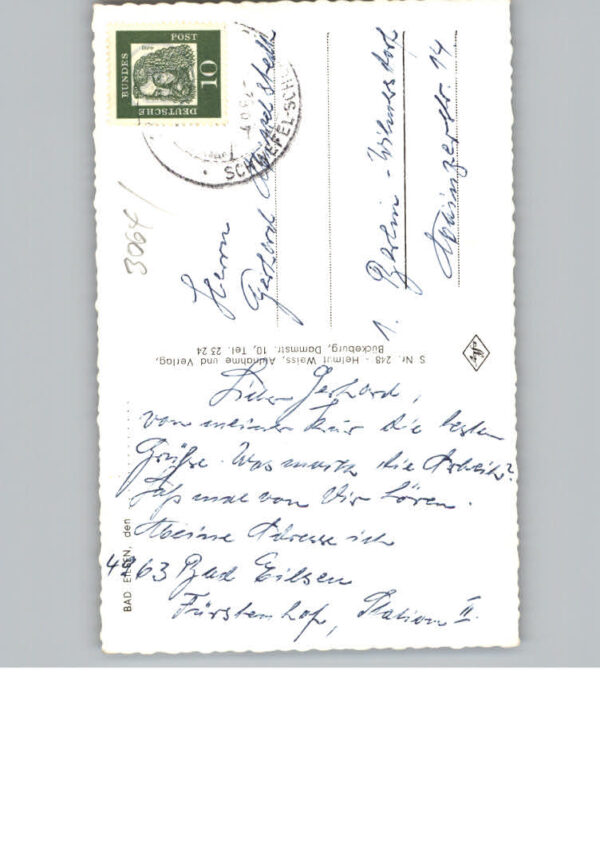 DEUTSCHE
BUNDES
POST
10
SCHWEFEL-SCH
3064/
Herrn
Gerhard
1. Berlin-Wilmersdorf
Mainzerstr. 14
S Nr. 248 - Helmut Weiss, Aufnahme und Verlag,
Bückeburg, Dammstr. 10, Tel. 23 24
BAD EILSEN, den
Lieber Gerhard,
von meiner Kur die besten
Grüße. Was macht die Arbeit?
Laß mal von Dir hören.
Meine Adresse ist
4963 Bad Eilsen
Fürstenhof, Station II.